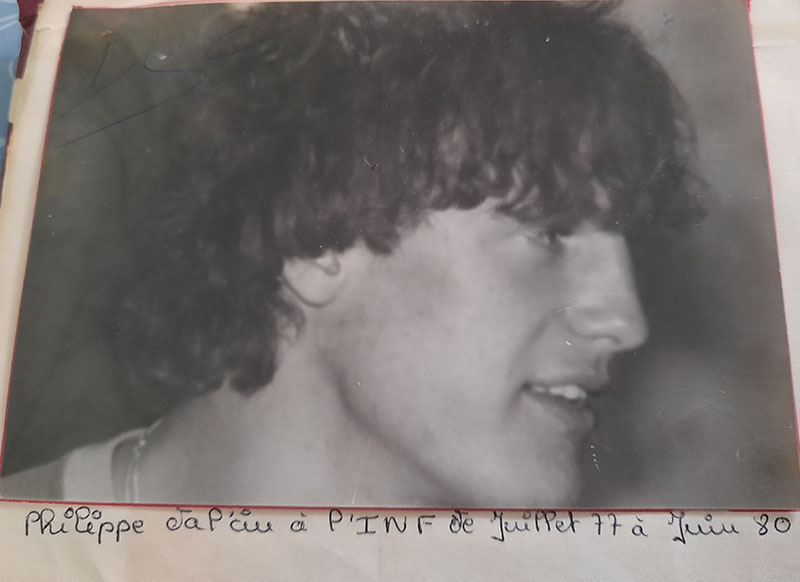 Philippe Dal'cin à l'INF de Juillet 77 à Juin 80